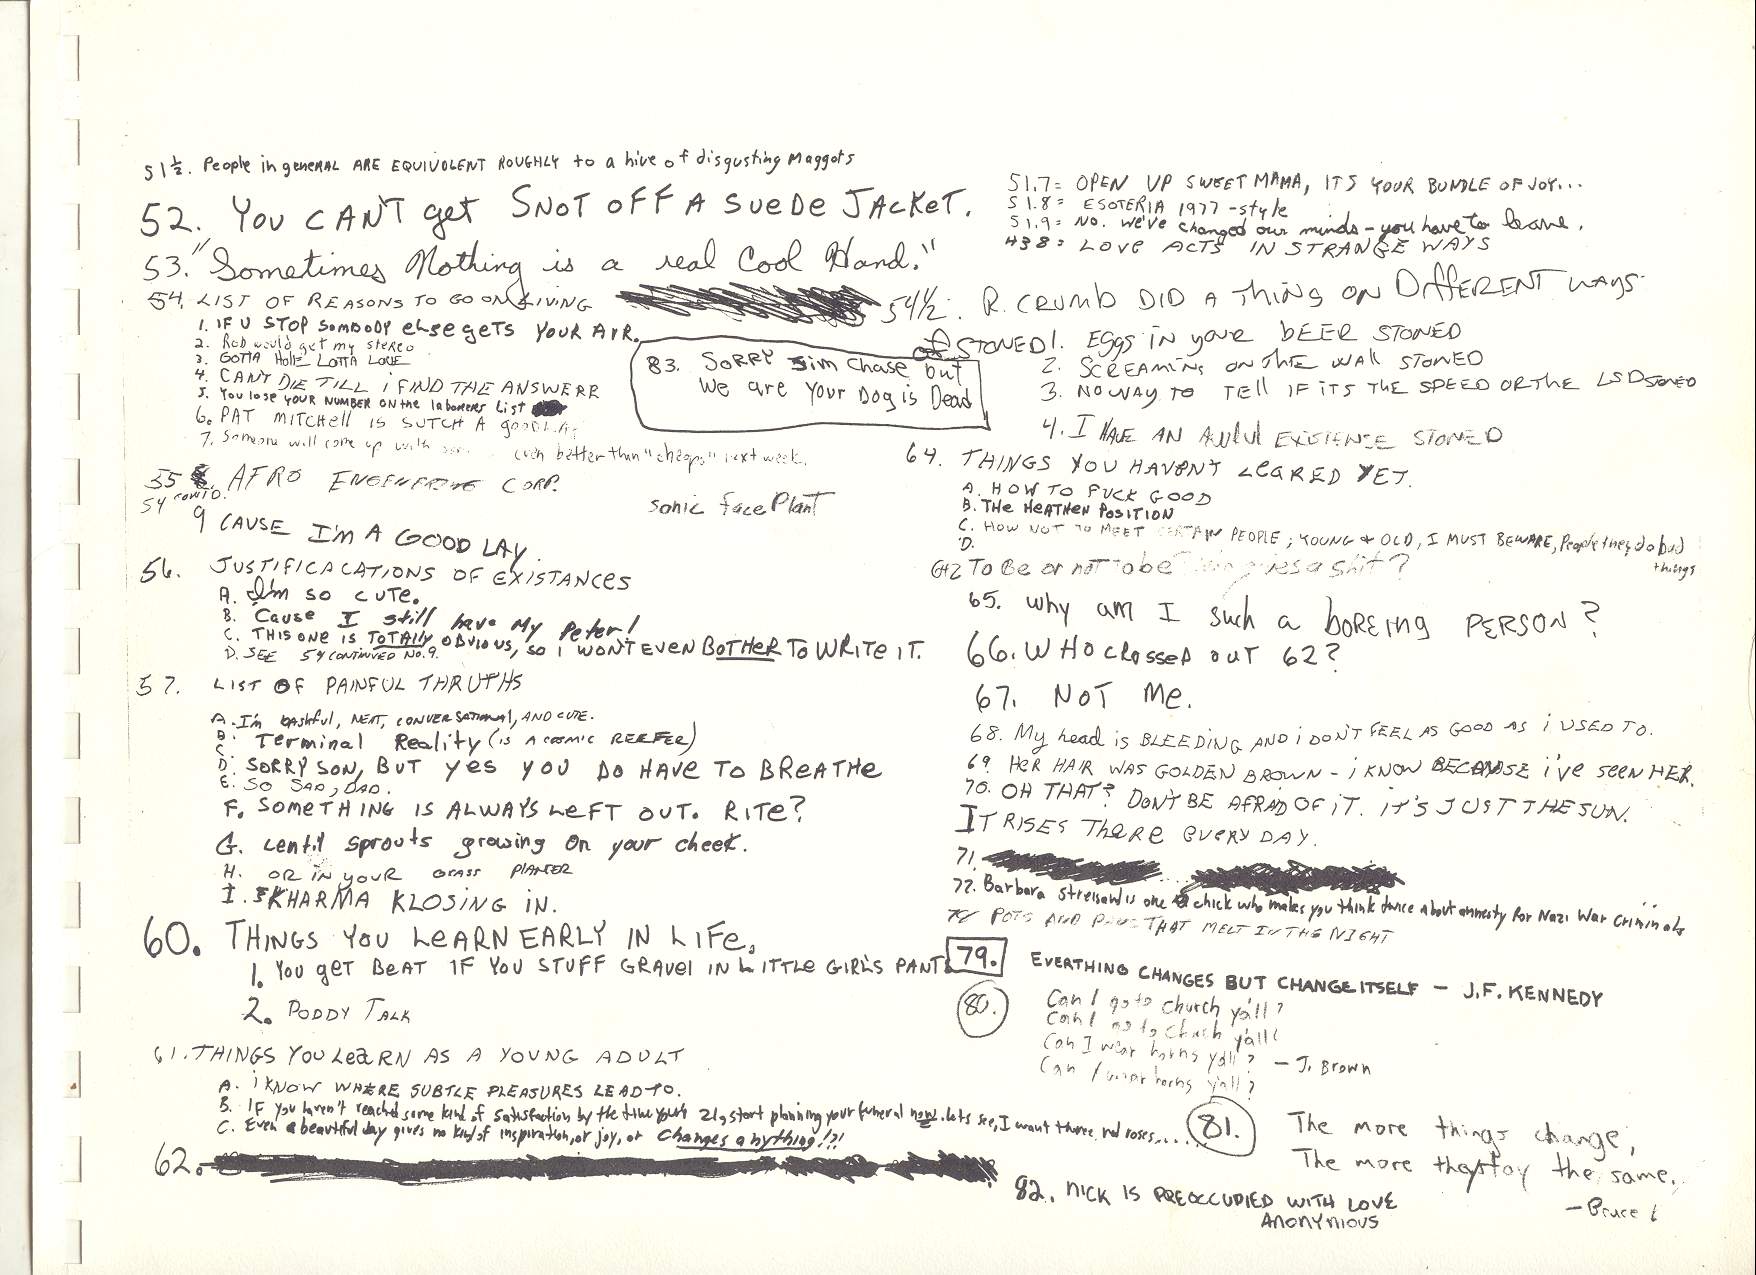 51½. People in general ARE EQUIVOLENT ROUGHLY to a hive of disgusting Maggots
52. YOU CAN'T get SNOT OFF A SUEDE JACKET.
53. "Sometimes Nothing is a real Cool Hand."
54. LIST OF REASONS TO GO ON LIVING
1. IF U STOP SOMBODY else gets YOUR AIR.
2. Rob would get my stereo
3. GOTTA HOLE LOTTA LOVE
4. CANT DIE TILL i FIND THE ANSWERR
5. YOU lose YOUR NUMBER ON the laborers list
6. PAT MITCHELL IS SUTCH A good LAY
7. Someone will come up with even better than "cheapo" next week.
83. SORRY Jim Chase but
we are your Dog is Dead
55. AFRO ENGENERING CORP.
sonic face PlanT
54 CONT'D.
9 CAUSE I'M A GOOD LAY.
56. JUSTIFICACATIONS OF EXISTANCES
A. I'm so cute.
B. 'Cause I still have My Peter!
C. THIS ONE IS TOTALLY OBVIOUS, SO I WON'T EVEN BOTHER TO WRITE IT.
D. SEE 54 CONTINUED NO. 9.
57. LIST OF PAINFUL THRUTHS
A. I'm bashful, NEAT, CONVERSATIONAL, AND CUTE.
B. Terminal Reality (IS A COSMIC REEFER)
C.
D. SORRY SON, BUT YES YOU DO HAVE TO BREATHE
E. SO SAD, DAD.
F. SOMETHING IS ALWAYS LEFT OUT. RITE?
G. Lentil sprouts growing on your cheek.
H. OR IN YOUR GRASS PLANTER
I. KHARMA KLOSING IN.
60. THINGS YOU LEARN EARLY IN LIFE.
1. YOU get BEAT IF YOU STUFF GRAVEl IN LITTLE GIRLS PANTS
2. PODDY TALK
61. THINGS YOU LEARN AS A YOUNG ADULT
A. i KNOW WHERE SUBTLE PLEASURES LEAD TO.
B. IF you haven't reached some kind of satisfaction by the time you're 21, start planning your funeral now. lets see, I want three red roses....
C. Even a beautiful day gives no kind of inspiration, or joy, or changes anything!?!
62.
51.7= OPEN UP SWEET MAMA, ITS YOUR BUNDLE OF JOY...
51.8= ESOTERIA 1977-style
51.9= NO. We've changed our minds - you have to leave.
438= LOVE ACTS IN STRANGE WAYS
54½. R. CRUMB DID A THING ON DIffERENT WAYS
of STONED 1. Eggs in your BEER STONED
2. SCREAMING ON THE WALL STONED
3. NO WAY TO TELL IF ITS THE SPEED OR THE LSD STONED
4. I HAVE AN AWful EXISTENSE STONED
64. THINGS YOU HAVEN'T LEARED YET.
A. HOW TO FUCK GOOD
B. THE HEATHEN POSITION
C. HOW NOT TO MEET CERTAIN PEOPLE; YOUNG + OLD, I MUST BEWARE, People they do bad things
D.
64½ To Be or not to be gives a shit?
65. Why am I such a boreing PERSON?
66. WHO crossed out 62?
67. NOT Me.
68. My head is BLEEDING AND i DON'T FEEL AS GOOD AS i USED TO.
69. HER HAIR WAS GOLDEN BROWN - i KNOW BECAUSE i've seen HER.
70. OH THAT? DON'T BE AFRAD OF iT. iT'S JUST THE SUN.
IT RISES THERE EVERY DAY.
71.
72. Barbara Streisand is one chick who makes you think twice about amnesty for Nazi War Criminals
POTS AND THAT MELT IN THE NIGHT
79. EVERTHING CHANGES BUT CHANGE ITSELF - J.F. KENNEDY
80. Can I go to church ya'll?
Can I go to church ya'll
Can I wear horns yall? - J. Brown
Can I wear horns ya'll?
81. The more things change,
The more they stay the same.
- Bruce L
82. NICK IS PREOCCUPIED WITH LOVE
ANONYMOUS